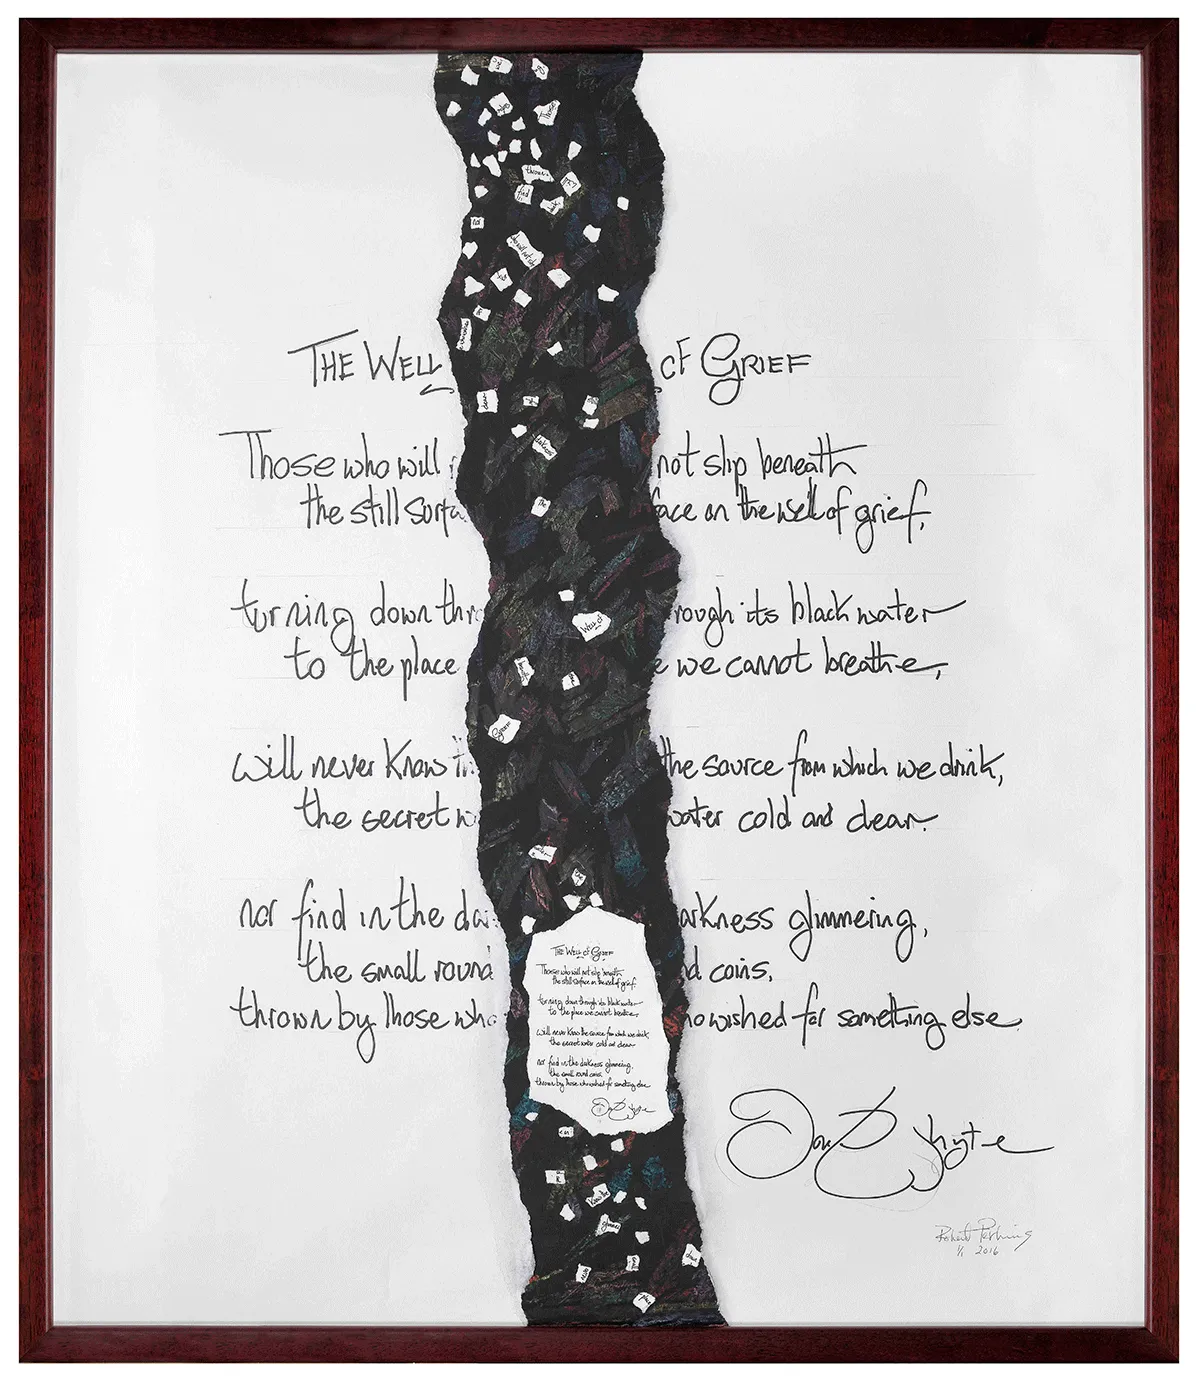 THE WELL OF GRIEF
Those who will not slip beneath
the still surfa face on the well of grief,
turning down thr rough its black water
to the place e we cannot breathe,
will never know th the source from which we drink,
the secret w water cold and clear.
nor find in the da arkness glimmering,
the small round d coins,
thrown by those who ho wished for something else
David Whyte
Robert Pershing
1/1 2016
THE WELL OF GRIEF
Those who will not slip beneath
the still surface on the well of grief,
turning down through its black water
to the place we cannot breathe,
will never know the source from which we drink,
the secret water cold and clear.
nor find in the darkness glimmering,
the small round coins,
thrown by those who wished for something else
David Whyte
thrown
find
nor
clear
The
WELL of
GRIEF